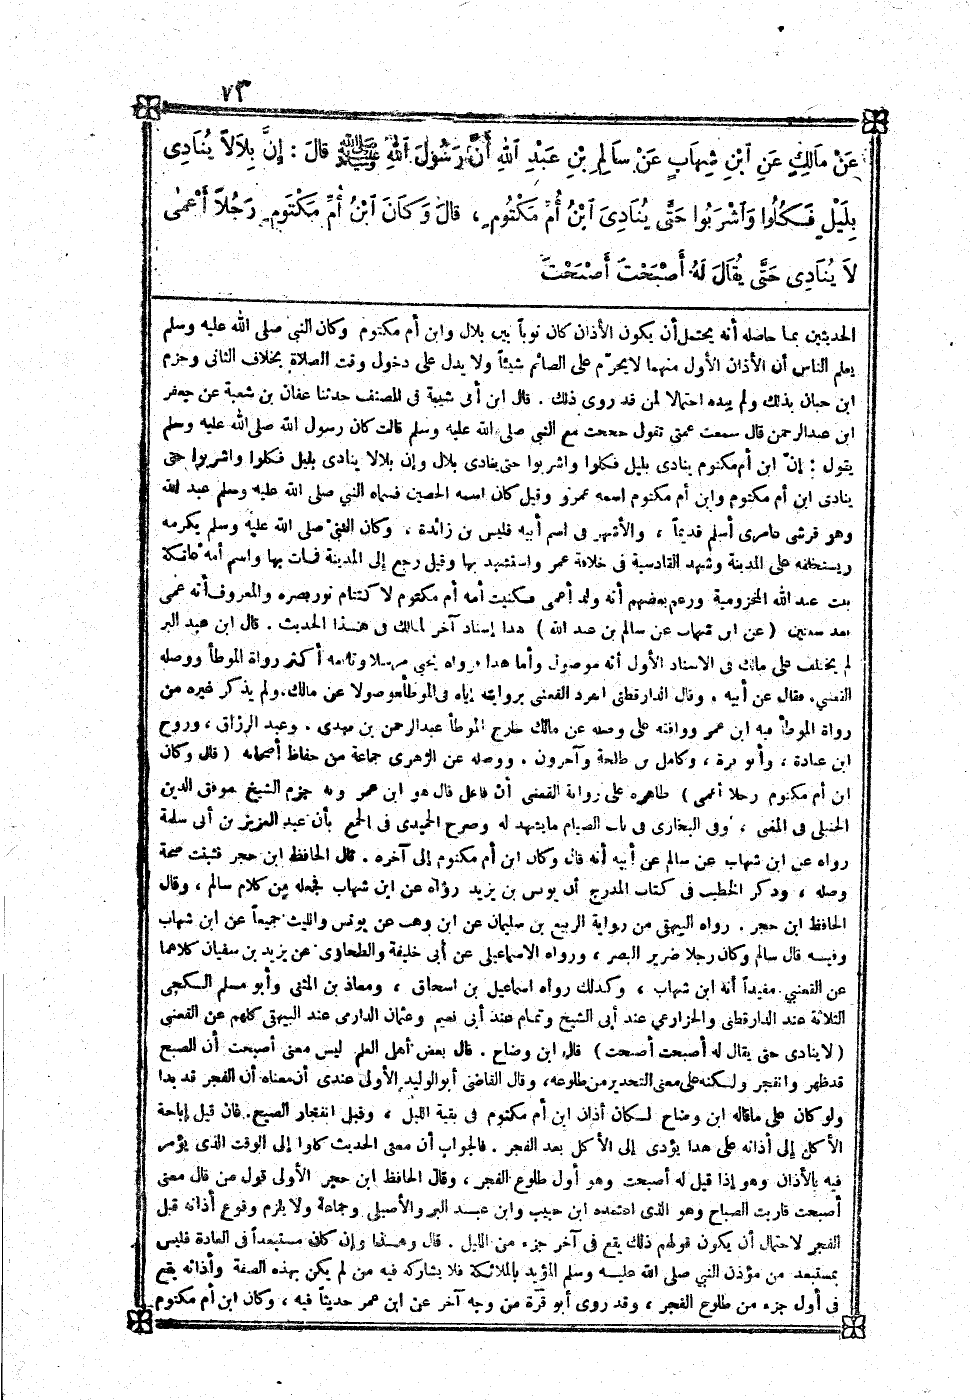 ٧٣
عَنْ مَالِكٍ عَنِ ٱبْنِ شِهَابٍ عَنْ سَالِمِ بْنِ عَبْدِ ٱللهِ أَنَّ رَسُولَ ٱللهِ ﷺ قَالَ : إِنَّ بِلَالاً يُنَادِى
بِلَيْلٍ فَكُلُوا وَٱشْرَبُوا حَتَّى يُنَادِىَ ٱبْنُ أُمِّ مَكْتُومٍ ، قَالَ وَكَانَ ٱبْنُ أُمِّ مَكْتُومٍ رَجُلاً أَعْمَى
لاَ يُنَادِى حَتَّى يُقَالَ لَهُ أَصْبَحْتَ أَصْبَحْتَ
الحديثين بما حاصله أنه يحتمل أن يكون الأذان كان نوباً بين بلال وابن أم مكتوم وكان النبي صلى الله عليه وسلم
يعلم الناس أن الأذان الأول منهما لا يحرّم على الصائم شيئاً ولا يدل على دخول وقت الصلاة بخلاف الثانى وجزم
ابن حبان بذلك ولم يبده احتمالا لمن قد روى ذلك . قال ابن أبى شيبة فى المصنف حدثنا عفان بن شعبة عن جعفر
ابن عبد الرحمن قال سمعت عمتى تقول حججت مع النبي صلى الله عليه وسلم قالت كان رسول الله صلى الله عليه وسلم
يقول : إنّ ابن أم مكتوم ينادى بليل فكلوا واشربوا حتى ينادى بلال وإن بلالا ينادى بليل فكلوا واشربوا حتى
ينادى ابن أم مكتوم وابن أم مكتوم اسمه عمرو وقيل كان اسمه الحصين فسماه النبي صلى الله عليه وسلم عبد الله
وهو قرشى عامرى أسلم قديماً ، والأشهر فى اسم أبيه قيس بن زائدة ، وكان النبي صلى الله عليه وسلم يكرمه
ويستخلفه على المدينة وشهد القادسية فى خلافة عمر واستشهد بها وقيل رجع إلى المدينة فمات بها واسم أمه عاتكة
بنت عبد الله المخزومية وزعم بعضهم أنه ولد أعمى فكنيت أمه أم مكتوم لاكتتام نور بصره والمعروف أنه عمى
بعد سنتين ( عن ابن شهاب عن سالم بن عبد الله ) هذا إسناد آخر لمالك فى هذا الحديث . قال ابن عبد البر
لم يختلف على مالك فى الاسناد الأول أنه موصول وأما هذا فرواه يحيى مرسلا وتابعه أكثر رواة الموطأ ووصله
القعنبي فقال عن أبيه . وقال الدارقطنى انفرد القعنبى بروايته إياه فى الموطأ موصولا عن مالك ولم يذكر غيره من
رواة الموطأ فيه ابن عمر ووافقه على وصله عن مالك خارج الموطأ عبد الرحمن بن مهدى . وعبد الرزاق ، وروح
ابن عبادة ، وأبو قرة ، وكامل بن طلحة وآخرون . ووصله عن الزهرى جماعة من حفاظ أصحابه ( قال وكان
ابن أم مكتوم رجلا أعمى ) ظاهره على رواية القعنبى أن فاعل قال هو ابن عمر وبه جزم الشيخ موفق الدين
الحنبلى فى المغنى ، وفى البخارى فى باب الصيام ما يشهد له وصرح الحميدى فى الجمع بأن عبد العزيز بن أبى سلمة
رواه عن ابن شهاب عن سالم عن أبيه أنه قال وكان ابن أم مكتوم إلى آخره . قال الحافظ ابن حجر فثبتت صحة
وصله ، وذكر الخطيب فى كتاب المدرج أن يونس بن يزيد رواه عن ابن شهاب فجعله من كلام سالم ، وقال
الحافظ ابن حجر . رواه البيهقى من رواية الربيع بن سليمان عن ابن وهب عن يونس والليث جميعاً عن ابن شهاب
وفيه قال سالم وكان رجلا ضرير البصر ، ورواه الاسماعيلى عن أبى خليفة والطحاوى عن يزيد بن سفيان كلاهما
عن القعنبي مفيداً أنه ابن شهاب ، وكذلك رواه اسماعيل بن اسحاق ، ومعاذ بن المثنى وأبو مسلم الكجى
الثلاثة عند الدارقطنى والخزاعى عند أبى الشيخ وتمام عند أبى نعيم وعثمان الدارمى عند البيهقى كلهم عن القعنبى
( لا ينادى حتى يقال له أصبحت أصبحت ) قال ابن وضاح . قال بعض أهل العلم ليس معنى أصبحت أن الصبح
قد ظهر وانفجر ولكنه على معنى التحذير من طلوعه ، وقال القاضى أبو الوليد الأولى عندى أن معناه أن الفجر قد بدا
ولو كان على ما قاله ابن وضاح لكان أذان ابن أم مكتوم فى بقية الليل ، وقبل انفجار الصبح . فان قيل إباحة
الأكل إلى أذانه على هذا يؤدى إلى الأكل بعد الفجر . فالجواب أن معنى الحديث كلوا إلى الوقت الذى يؤمر
فيه بالأذان وهو إذا قيل له أصبحت وهو أول طلوع الفجر ، وقال الحافظ ابن حجر الأولى قول من قال معنى
أصبحت قاربت الصباح وهو الذى اعتمده ابن حبيب وابن عبد البر والأصيلى وجماعة ولا يلزم وقوع أذانه قبل
الفجر لاحتمال أن يكون قولهم ذلك يقع فى آخر جزء من الليل . قال وهذا وإن كان مستبعداً فى العادة فليس
بمستبعد من مؤذن النبي صلى الله عليه وسلم المؤيد بالملائكة فلا يشاركه فيه من لم يكن بهذه الصفة وأذانه يقع
فى أول جزء من طلوع الفجر ، وقد روى أبو قرة من وجه آخر عن ابن عمر حديثاً فيه ، وكان ابن أم مكتوم